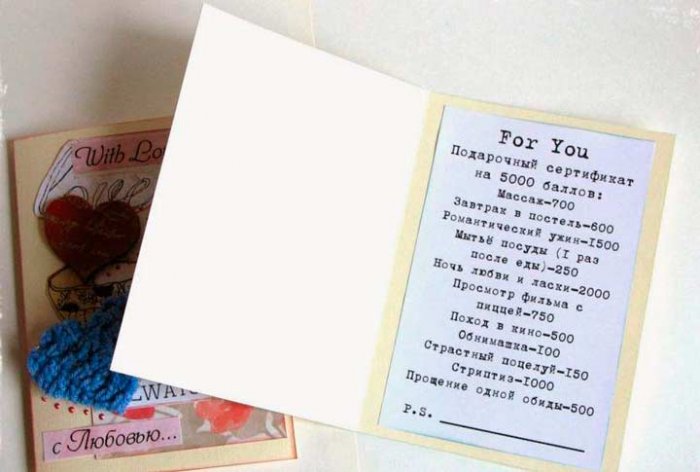 With Lo
LWAYS
с Любовью...
For You
Подарочный сертификат
на 5000 баллов:
Массаж-700
Завтрак в постель-600
Романтический ужин-1500
Мытьё посуды (1 раз
после еды)-250
Ночь любви и ласки-2000
Просмотр фильма с
пиццей-750
Поход в кино-500
Обнимашка-100
Страстный поцелуй-150
Стриптиз-1000
Прощение одной обиды-500
P.S.